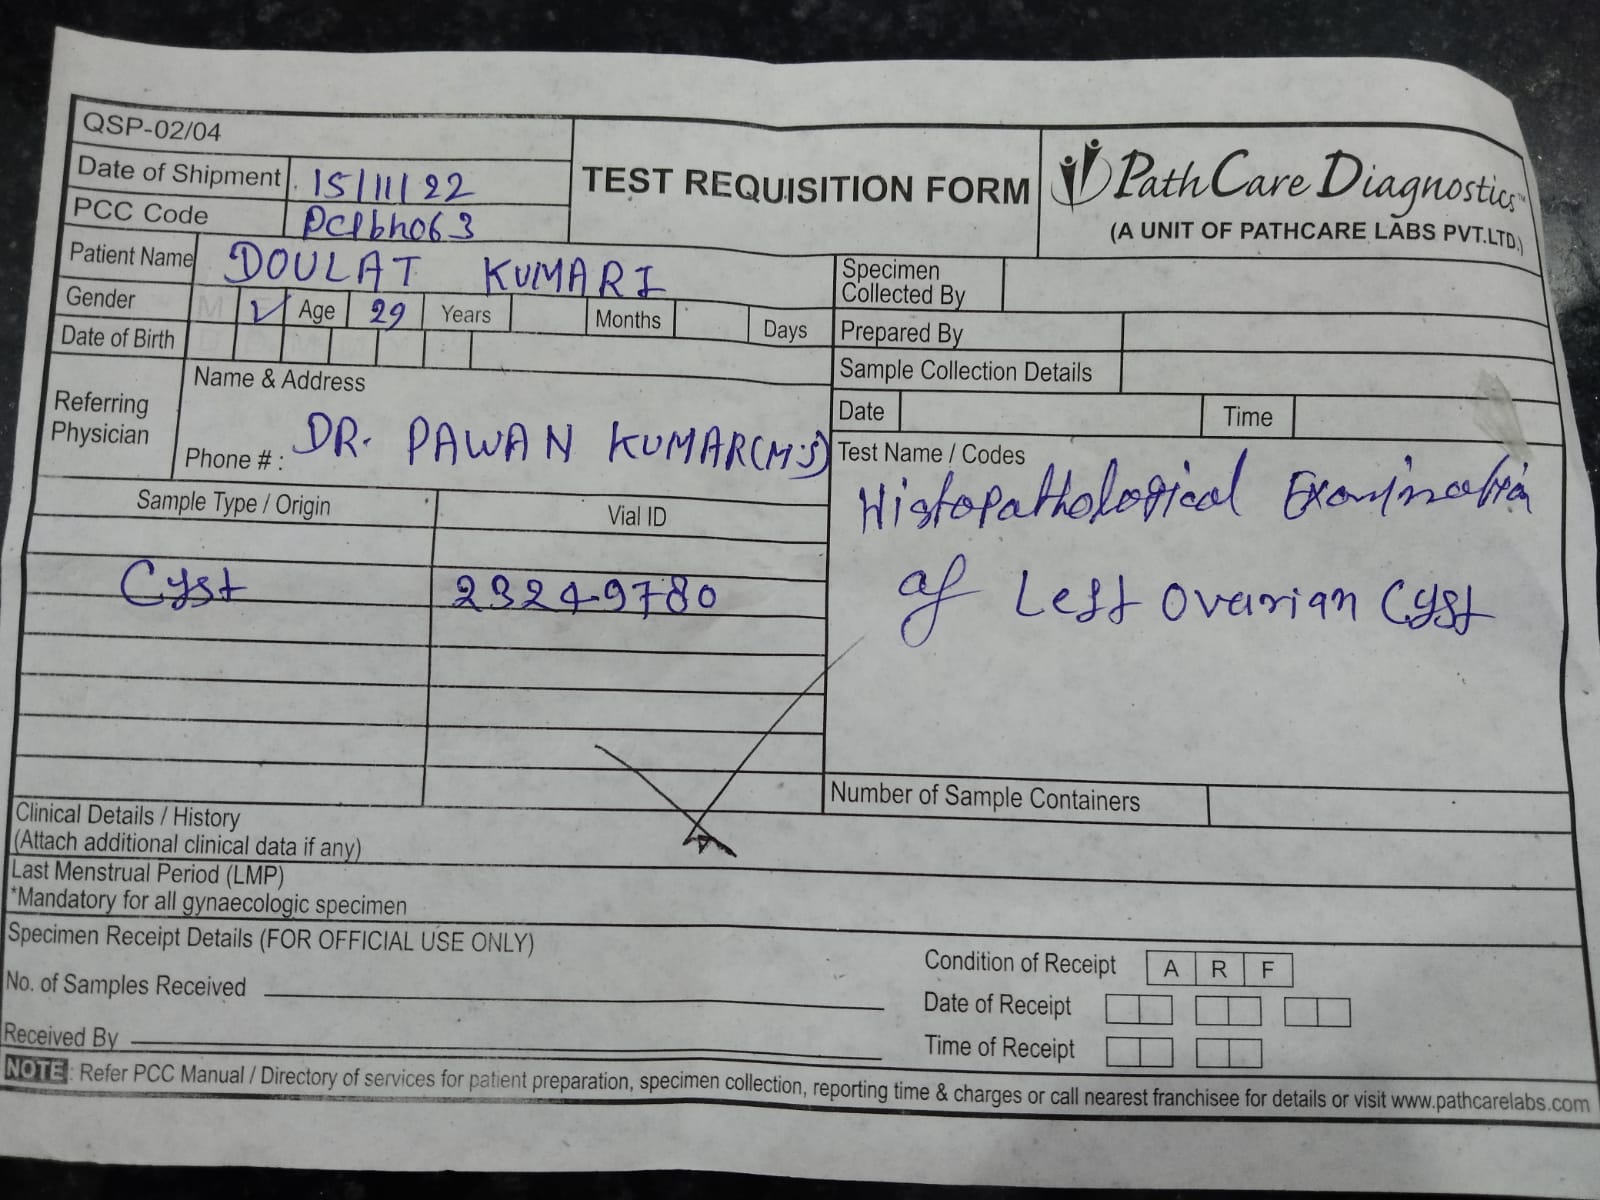 QSP-02/04
Date of Shipment 15/11/22
PCC Code
TEST REQUISITION FORM
PathCare Diagnostics™
(A UNIT OF PATHCARE LABS PVT.LTD.)
Patient Name DOULAT KUMARI
Gender M ✓ Age 29 Years Months Days
Date of Birth
Specimen
Collected By
Prepared By
Sample Collection Details
Date Time
Referring
Physician
Name & Address
DR. PAWAN KUMAR (M.S)
Phone # :
Sample Type / Origin Vial ID
Cyst 23249780
Test Name / Codes
Histopathological Examination
of Left Ovarian Cyst
Number of Sample Containers
Clinical Details / History
(Attach additional clinical data if any)
Last Menstrual Period (LMP)
*Mandatory for all gynaecologic specimen
Specimen Receipt Details (FOR OFFICIAL USE ONLY)
No. of Samples Received
Received By
Condition of Receipt A R F
Date of Receipt
Time of Receipt
NOTE : Refer PCC Manual / Directory of services for patient preparation, specimen collection, reporting time & charges or call nearest franchisee for details or visit www.pathcarelabs.com